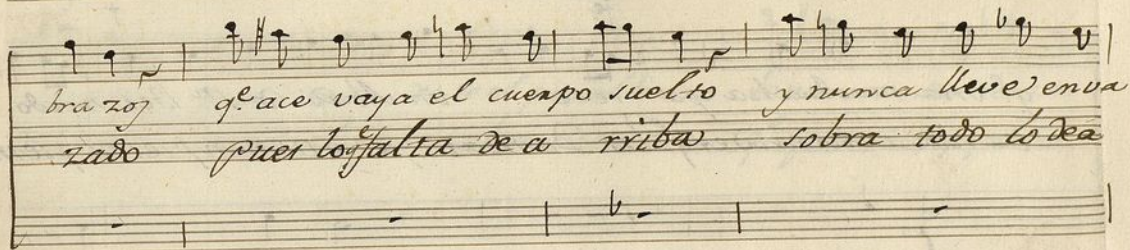 bra zos qe. ace vaya el cuerpo suelto y nunca lleve enva
zado pues lo qe falta de a rriba sobra todo lo dea